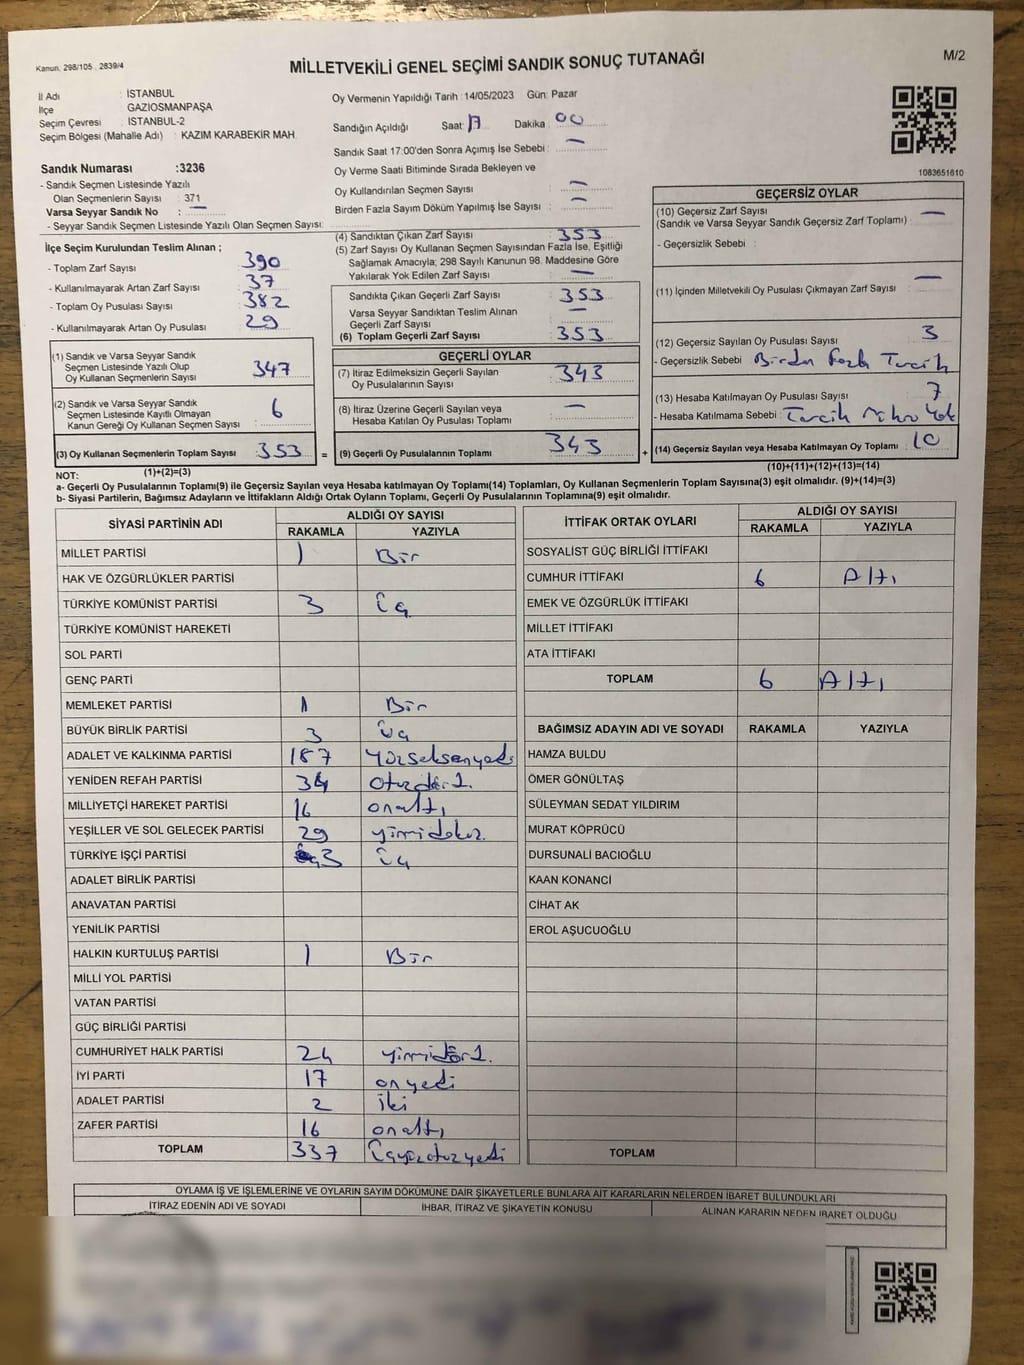 Kanun. 298/105 , 2839/4
MİLLETVEKİLİ GENEL SEÇİMİ SANDIK SONUÇ TUTANAĞI
M/2
İl Adı : İSTANBUL
İlçe GAZİOSMANPAŞA
Seçim Çevresi : İSTANBUL-2
Seçim Bölgesi (Mahalle Adı) : KAZIM KARABEKİR MAH.
Oy Vermenin Yapıldığı Tarih : 14/05/2023 Gün: Pazar
Sandığın Açıldığı Saat: 17 Dakika : 00
Sandık Saat 17:00'den Sonra Açımış İse Sebebi : —
Oy Verme Saati Bitiminde Sırada Bekleyen ve
Oy Kullandırılan Seçmen Sayısı —
Birden Fazla Sayım Döküm Yapılmış İse Sayısı : —
1083651610
Sandık Numarası :3236
- Sandık Seçmen Listesinde Yazılı
Olan Seçmenlerin Sayısı : 371
Varsa Seyyar Sandık No : —
- Seyyar Sandık Seçmen Listesinde Yazılı Olan Seçmen Sayısı:
İlçe Seçim Kurulundan Teslim Alınan ;
- Toplam Zarf Sayısı 390
- Kullanılmayarak Artan Zarf Sayısı : 37
- Toplam Oy Pusulası Sayısı : 382
- Kullanılmayarak Artan Oy Pusulası : 29
(1) Sandık ve Varsa Seyyar Sandık
Seçmen Listesinde Yazılı Olup
Oy Kullanan Seçmenlerin Sayısı : 347
(2) Sandık ve Varsa Seyyar Sandık
Seçmen Listesinde Kayıtlı Olmayan
Kanun Gereği Oy Kullanan Seçmen Sayısı : 6
(3) Oy Kullanan Seçmenlerin Toplam Sayısı : 353 =
(1)+(2)=(3)
(4) Sandıktan Çıkan Zarf Sayısı : 353
(5) Zarf Sayısı Oy Kullanan Seçmen Sayısından Fazla İse, Eşitliği
Sağlamak Amacıyla; 298 Sayılı Kanunun 98. Maddesine Göre
Yakılarak Yok Edilen Zarf Sayısı : —
Sandıkta Çıkan Geçerli Zarf Sayısı : 353
Varsa Seyyar Sandıktan Teslim Alınan
Geçerli Zarf Sayısı : —
(6) Toplam Geçerli Zarf Sayısı : 353
GEÇERLİ OYLAR
(7) İtiraz Edilmeksizin Geçerli Sayılan
Oy Pusulalarının Sayısı : 343
(8) İtiraz Üzerine Geçerli Sayılan veya
Hesaba Katılan Oy Pusulası Toplamı : —
(9) Geçerli Oy Pusulalarının Toplamı : 343 +
GEÇERSİZ OYLAR
(10) Geçersiz Zarf Sayısı : —
(Sandık ve Varsa Seyyar Sandık Geçersiz Zarf Toplamı)
- Geçersizlik Sebebi :
(11) İçinden Milletvekili Oy Pusulası Çıkmayan Zarf Sayısı : —
(12) Geçersiz Sayılan Oy Pusulası Sayısı : 3
- Geçersizlik Sebebi : Birden Fazla Tercih
(13) Hesaba Katılmayan Oy Pusulası Sayısı : 7
- Hesaba Katılmama Sebebi : Tercih Mührü Yok
(14) Geçersiz Sayılan veya Hesaba Katılmayan Oy Toplamı : 10
(10)+(11)+(12)+(13)=(14)
NOT:
a- Geçerli Oy Pusulalarının Toplamı(9) ile Geçersiz Sayılan veya Hesaba katılmayan Oy Toplamı(14) Toplamları, Oy Kullanan Seçmenlerin Toplam Sayısına(3) eşit olmalıdır. (9)+(14)=(3)
b- Siyasi Partilerin, Bağımsız Adayların ve İttifakların Aldığı Ortak Oyların Toplamı, Geçerli Oy Pusulalarının Toplamına(9) eşit olmalıdır.
SİYASİ PARTİNİN ADI ALDIĞI OY SAYISI
RAKAMLA YAZIYLA
MİLLET PARTİSİ 1 Bir
HAK VE ÖZGÜRLÜKLER PARTİSİ
TÜRKİYE KOMÜNİST PARTİSİ 3 Üç
TÜRKİYE KOMÜNİST HAREKETİ
SOL PARTİ
GENÇ PARTİ
MEMLEKET PARTİSİ 1 Bir
BÜYÜK BİRLİK PARTİSİ 3 Üç
ADALET VE KALKINMA PARTİSİ 187 Yüzseksenyedi
YENİDEN REFAH PARTİSİ 34 Otuzdört.
MİLLİYETÇİ HAREKET PARTİSİ 16 onaltı
YEŞİLLER VE SOL GELECEK PARTİSİ 29 yirmidokuz.
TÜRKİYE İŞÇİ PARTİSİ 3 Üç
ADALET BİRLİK PARTİSİ
ANAVATAN PARTİSİ
YENİLİK PARTİSİ
HALKIN KURTULUŞ PARTİSİ 1 Bir
MİLLİ YOL PARTİSİ
VATAN PARTİSİ
GÜÇ BİRLİĞİ PARTİSİ
CUMHURİYET HALK PARTİSİ 24 yirmidört.
İYİ PARTİ 17 onyedi
ADALET PARTİSİ 2 iki
ZAFER PARTİSİ 16 onaltı
TOPLAM 337 Üçyüzotuzyedi
İTTİFAK ORTAK OYLARI ALDIĞI OY SAYISI
RAKAMLA YAZIYLA
SOSYALİST GÜÇ BİRLİĞİ İTTİFAKI
CUMHUR İTTİFAKI 6 Altı
EMEK VE ÖZGÜRLÜK İTTİFAKI
MİLLET İTTİFAKI
ATA İTTİFAKI
TOPLAM 6 Altı
BAĞIMSIZ ADAYIN ADI VE SOYADI RAKAMLA YAZIYLA
HAMZA BULDU
ÖMER GÖNÜLTAŞ
SÜLEYMAN SEDAT YILDIRIM
MURAT KÖPRÜCÜ
DURSUNALİ BACIOĞLU
KAAN KONANCİ
CİHAT AK
EROL AŞUCUOĞLU
TOPLAM
OYLAMA İŞ VE İŞLEMLERİNE VE OYLARIN SAYIM DÖKÜMÜNE DAİR ŞİKAYETLERLE BUNLARA AİT KARARLARIN NELERDEN İBARET BULUNDUKLARI
İTİRAZ EDENİN ADI VE SOYADI İHBAR, İTİRAZ VE ŞİKAYETİN KONUSU ALINAN KARARIN NEDEN İBARET OLDUĞU